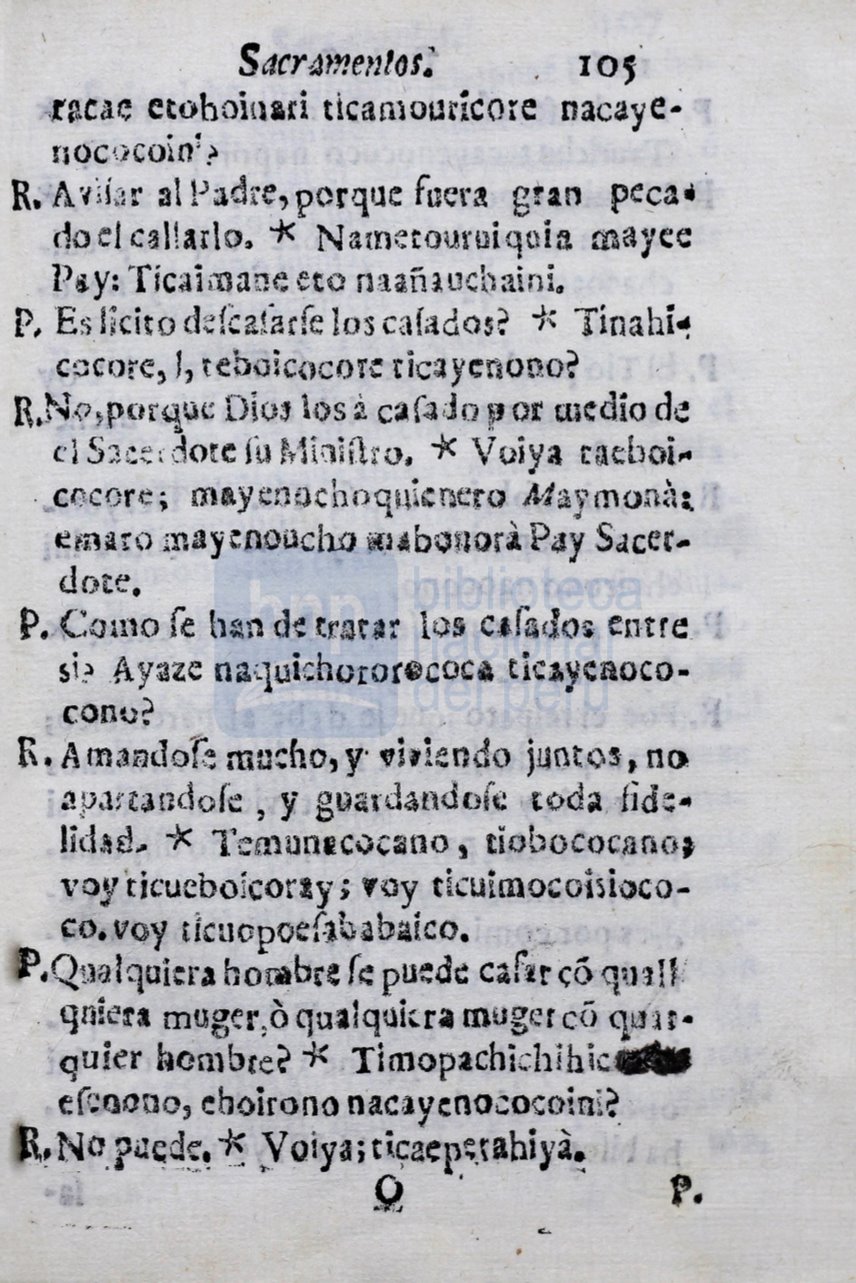 Sacramentos. 105
racae etohoinari ticamouricore nacaye-
nococoini?
R. Avisar al Padre, porque fuera gran peca-
do el callarlo. * Nametouruiquia mayee
Pay: Ticaimane eto naañauchaini.
P. Es licito descasarse los casados? * Tinahi-
cocore, l, teboicocore ticayenono?
R. No, porque Dios los à casado por medio de
el Sacerdote su Ministro. * Voiya taeboi-
cocore; mayenochoquienero Maymonà;
emaro mayenoucho mabonorà Pay Sacer-
dote.
P. Como se han de tratar los casados entre
si? Ayaze naquichororococa ticayenoco-
cono?
R. Amandose mucho, y viviendo juntos, no
apartandose, y guardandose toda fide-
lidad. * Temunacocano, tiobococano;
voy ticueboicoray; voy ticuimocoisioco-
co. voy ticuopoesababaico.
P. Qualquiera hombre se puede casar cõ quall
quiera muger, ò qualquiera muger cõ quar-
quier hombre? * Timopachichihic
esenono, ehoirono nacayenococoini?
R. No puede. * Voiya; ticaeperahiyà.
O P.
biblioteca
nacional
del perú
bnp